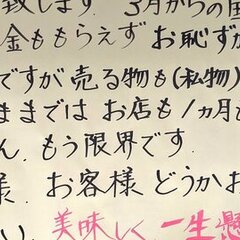 致します。3月からの
金ももらえず お恥ずか
ですが売る物も(私物)
ままでは お店も1ヵ月
ん。もう限界です。
様、お客様 どうかお
い。美味しく、一生懸